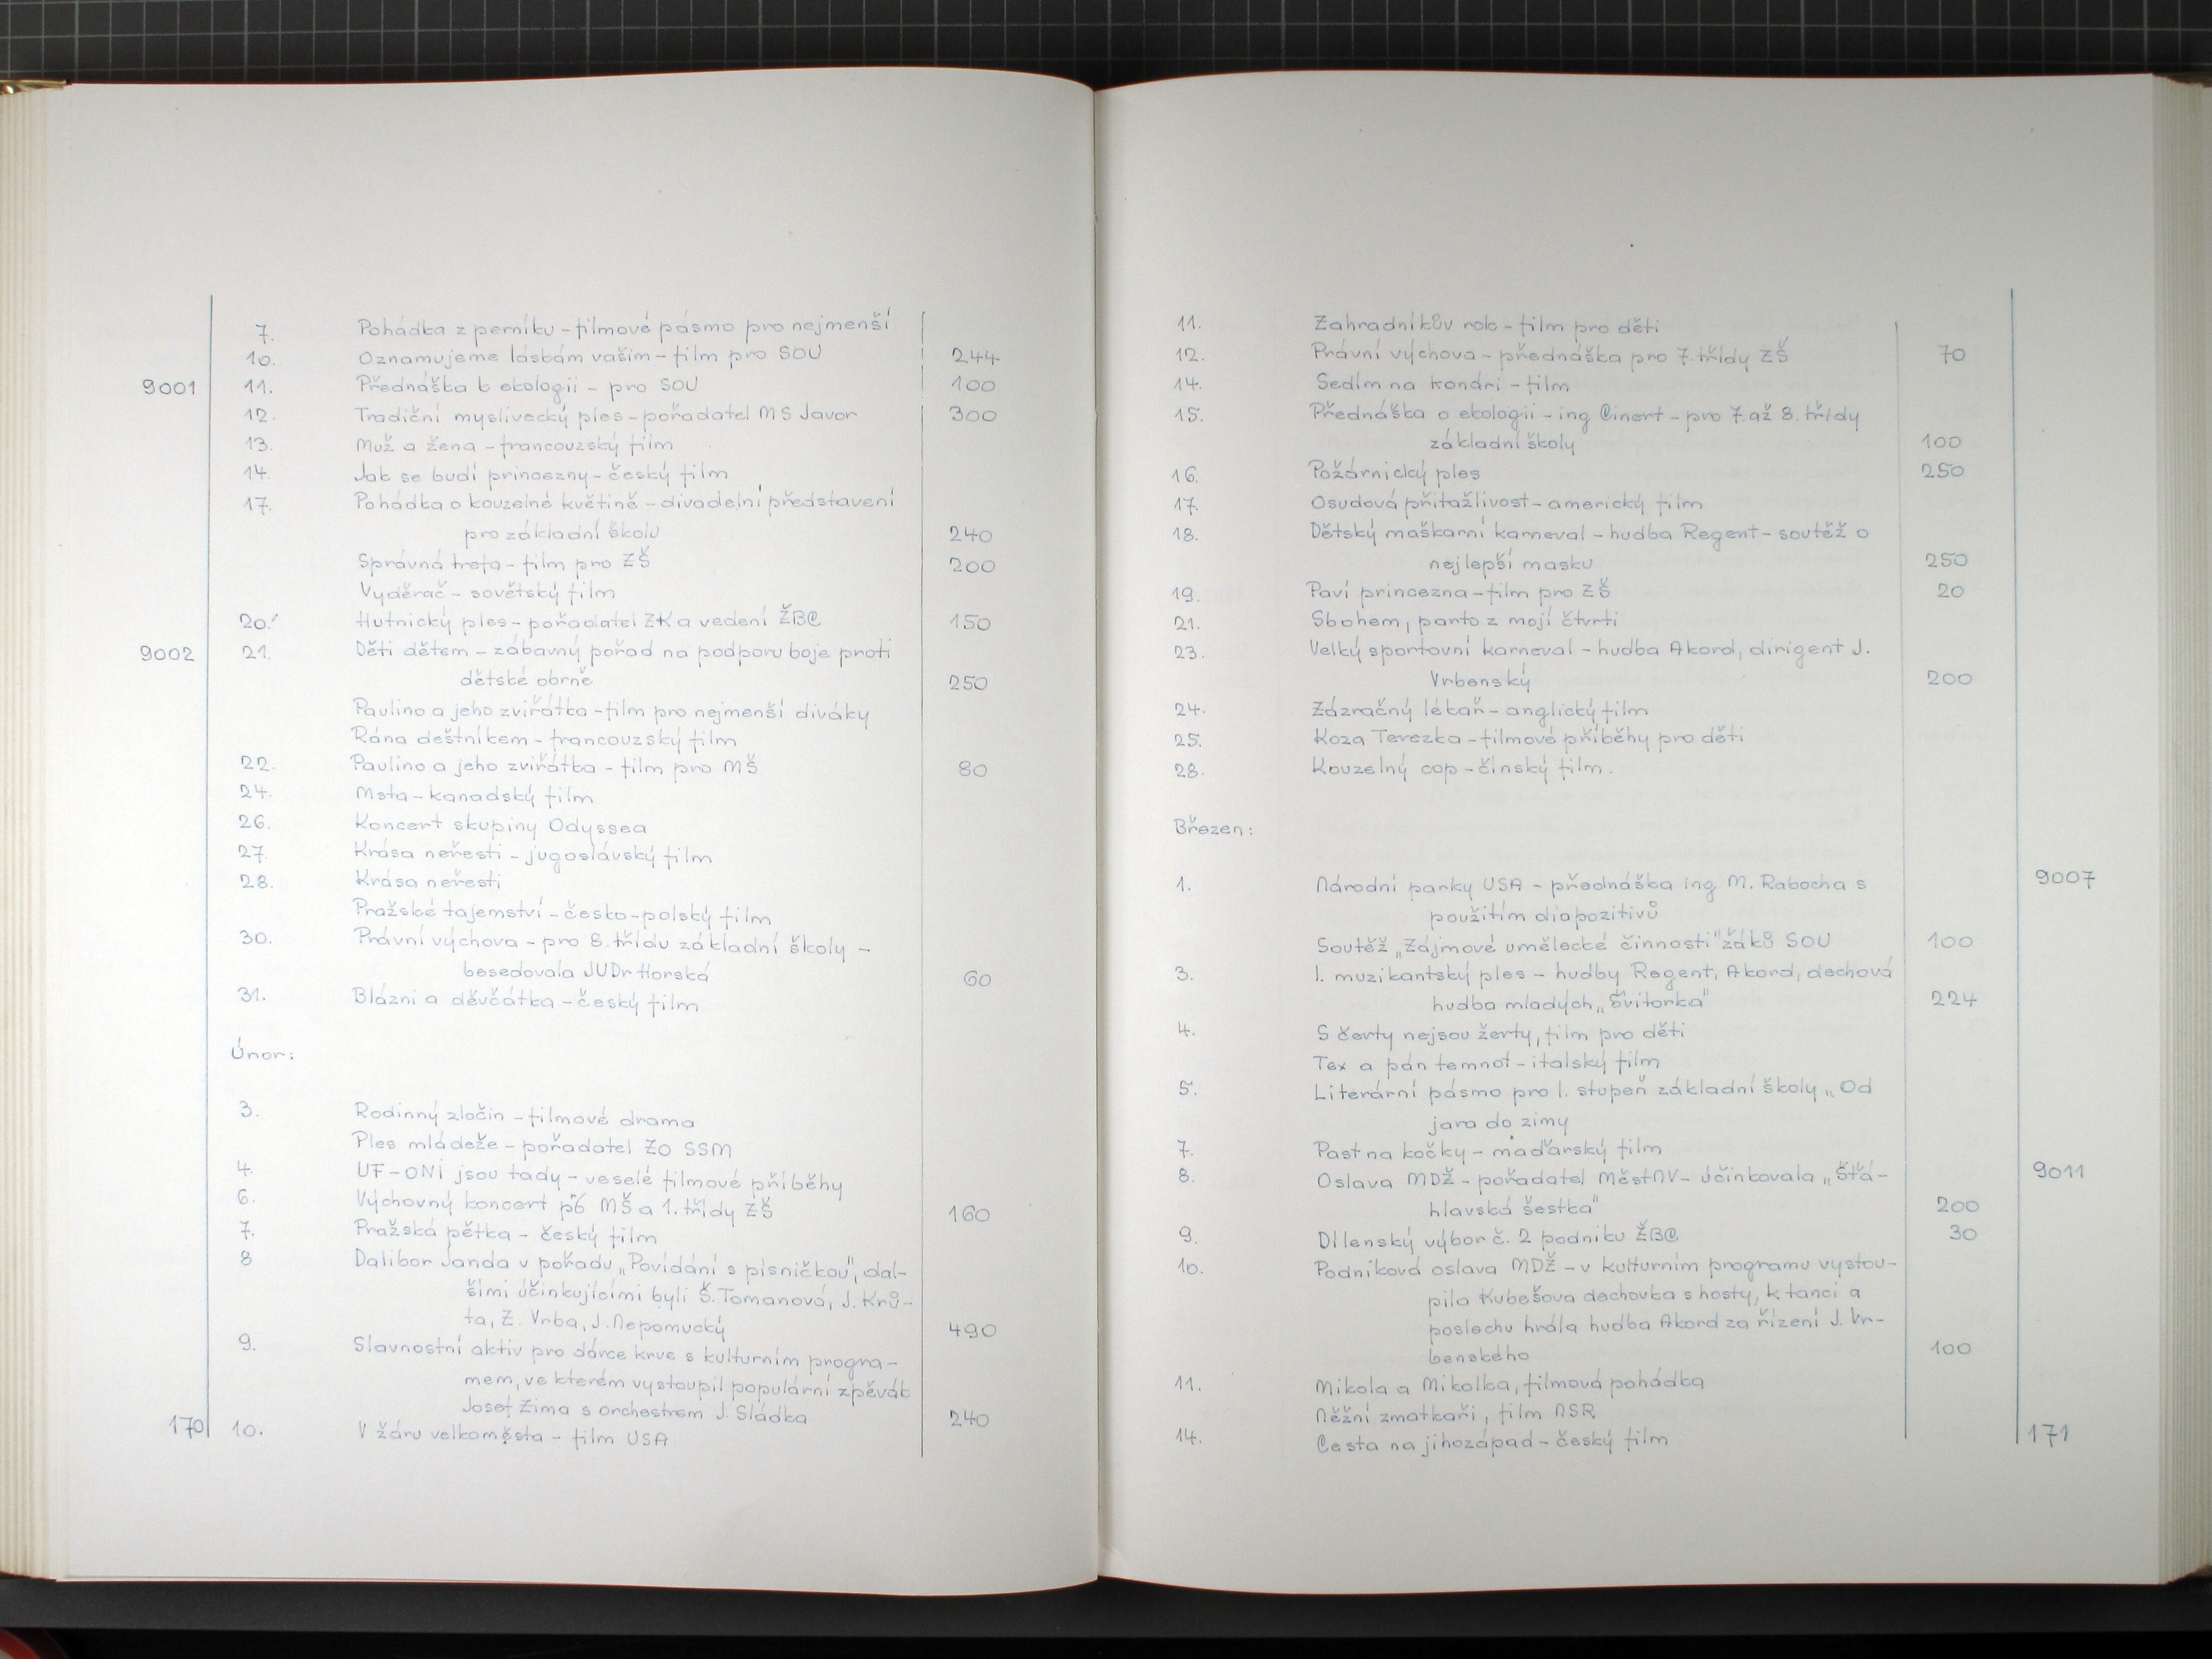 7. Pohádka z perníku - filmové pásmo pro nejmenší
10. Oznamujeme láskám vašim - film pro SOU 244
9001 11. Přednáška k ekologii - pro SOU 100
12. Tradiční myslivecký ples - pořadatel MS Javor 300
13. Muž a žena - francouzský film
14. Jak se budí princezny - český film
17. Pohádka o kouzelné květině - divadelní představení
pro základní školu 240
Správná trefa - film pro ZŠ 200
Vyděrač - sovětský film
20. Hutnický ples - pořadatel ZK a vedení ŽBC 150
9002 21. Děti dětem - zábavný pořad na podporu boje proti
dětské obrně 250
Paulino a jeho zvířátka - film pro nejmenší diváky
Rána deštníkem - francouzský film
22. Paulino a jeho zvířátka - film pro MŠ 80
24. Msta - kanadský film
26. Koncert skupiny Odyssea
27. Krása neřesti - jugoslávský film
28. Krása neřesti
Pražské tajemství - česko-polský film
30. Právní výchova - pro 8. třídu základní školy -
besedovala JUDr Horská 60
31. Blázni a děvčátka - český film
Únor:
3. Rodinný zločin - filmové drama
Ples mládeže - pořadatel ZO SSM
4. UF-ONI jsou tady - veselé filmové příběhy
6. Výchovný koncert pб MŠ a 1. třídy ZŠ 160
7. Pražská pětka - český film
8 Dalibor Janda v pořadu „Povídání s písničkou", dal-
šími účinkujícími byli Š. Tomanová, J. Krů-
ta, Z. Vrba, J. Nepomucký 490
9. Slavnostní aktiv pro dárce krve s kulturním progra-
mem, ve kterém vystoupil populární zpěvák
Josef Zíma s orchestrem J. Sládka 240
170 10. V žáru velkoměsta - film USA
11. Zahradníkův rok - film pro děti
12. Právní výchova - přednáška pro 7. třídy ZŠ 70
14. Sedím na konári - film
15. Přednáška o ekologii - ing Cinert - pro 7. až 8. třídy
základní školy 100
16. Požárnický ples 250
17. Osudová přitažlivost - americký film
18. Dětský maškarní karneval - hudba Regent - soutěž o
nejlepší masku 250
19. Paví princezna - film pro ZŠ 20
21. Sbohem, parto z mojí čtvrti
23. Velký sportovní karneval - hudba Akord, dirigent J.
Vrbenský 200
24. Zázračný lékař - anglický film
25. Koza Terezka - filmové příběhy pro děti
28. Kouzelný cop - čínský film.
Březen:
1. Národní parky USA - přednáška ing M. Rabocha s 9007
použitím diapozitivů
Soutěž „Zájmové umělecké činnosti" žáků SOU 100
3. 1. muzikantský ples - hudby Regent, Akord, dechová
hudba mladých „Svitorka" 224
4. S čerty nejsou žerty, film pro děti
Tex a pán temnot - italský film
5. Literární pásmo pro 1. stupeň základní školy „Od
jara do zimy
7. Past na kočky - maďarský film
8. Oslava MDŽ - pořadatel MěstNV - účinkovala „Štá- 9011
hlavská šestka" 200
9. Dílenský výbor č. 2 podniku ŽBC 30
10. Podniková oslava MDŽ - v kulturním programu vystou-
pila Kubešova dechovka s hosty, k tanci a
poslechu hrála hudba Akord za řízení J. Vr-
benského 100
11. Mikola a Mikolka, filmová pohádka
Něžní zmatkaři, film NSR
14. Cesta na jihozápad - český film 171